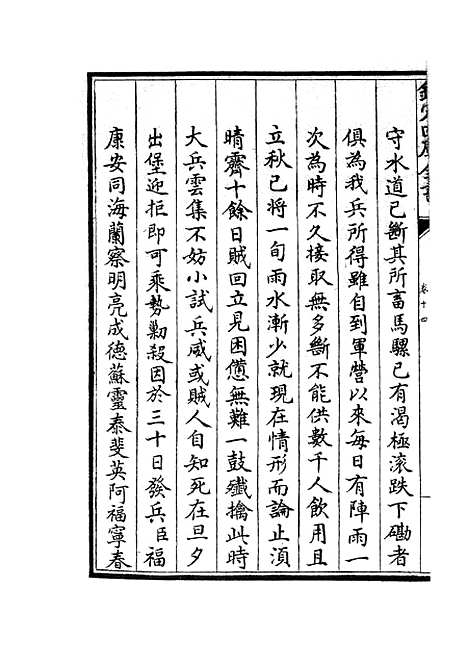 欽定四庫全書
卷十四
守水道已斷其所畜馬騾已有渴極滚跌下磡者
俱為我兵所得雖自到軍營以來每日有陣雨一
次為時不久接取無多斷不能供數千人飲用且
立秋已將一旬雨水漸少就現在情形而論止湏
晴霽十餘日賊囘立見困憊無難一鼓殱擒此時
大兵雲集不妨小試兵威或賊人自知死在旦夕
出堡迎拒即可乘勢勦殺因於三十日發兵臣福
康安同海蘭察明亮成德蘇靈泰斐英阿福寧春